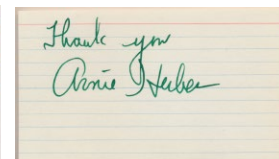 Thank you
Arnie Herber